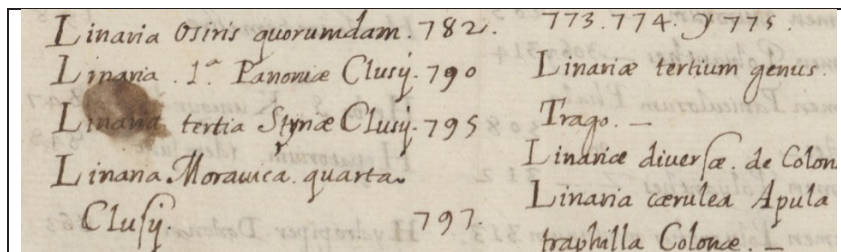 Linaria Osiris quorumdam. 782.
Linaria. 1ª Panoniæ Clusij. 790
Linaria tertia Styriæ Clusij. 795
Linaria Moravica quarta.
Clusij. 797.
773. 774. y 775.
Linariæ tertium genus.
Trago. —
Linariæ diversæ. de Colon
Linaria cærulea Apula
traphilla Colonæ —